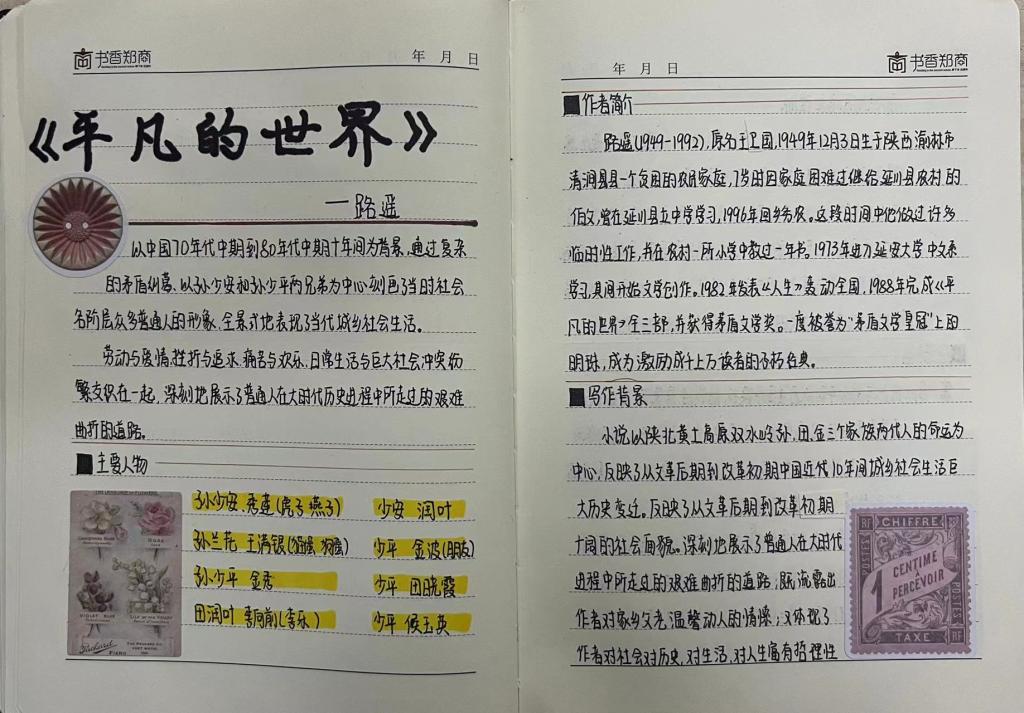 书香郑商
年 月 日
《平凡的世界》
—路遥
以中国70年代中期到80年代中期十年间为背景,通过复杂
的矛盾纠葛、以孙少安和孙少平两兄弟为中心刻画了当时社会
各阶层众多普通人的形象,全景式地表现了当代城乡社会生活。
劳动与爱情、挫折与追求、痛苦与欢乐、日常生活与巨大社会冲突纷
繁交织在一起,深刻地展示了普通人在大时代历史进程中所走过的艰难
曲折的道路。
主要人物
THE LANGUAGE OF FLOWERS
ROSE
VIOLET
Packard
PIANO
孙少安 秀莲(虎子 燕子) 少安 润叶
孙兰花 王满银( ) 少平 金波(朋友)
孙少平 金秀 少平 田晓霞
田润叶 李向前(李乐) 少平 侯玉英
年 月 日
书香郑商
作者简介
路遥(1949-1992),原名王卫国,1949年12月3日生于陕西 榆林市
清涧县县一个贫困的农民家庭,7岁时因家庭困难过继给延川县农村的
伯父,曾在延川县立中学学习,1996年回乡务农。这段时间中他做过许多
临时性工作,并在农村一所小学中教过一年书。1973年进入延安大学中文系
学习,其间开始文学创作。1982年发表《人生》轰动全国,1988年完成《平
凡的世界》全三部,并获得茅盾文学奖。一度被誉为"茅盾文学皇冠"上的
明珠,成为激励成千上万读者的不朽名典。
写作背景
小说以陕北黄土高原双水岭孙、田、金三个家族两代人的命运为
中心,反映了从文革后期到改革初期中国近代10年间城乡社会生活巨
大历史变迁。反映了从文革后期到改革初期
十间的社会面貌。深刻地展示了普通人在大时代
进程中所走过的艰难曲折的道路;既流露出
作者对家乡父老温馨动人的情愫;又体现了
作者对社会对历史,对生活,对人生富有哲理性
RF CHIFFRE RF
POSTES
1 CENTIME
À PERCEVOIR
RF TAXE RF